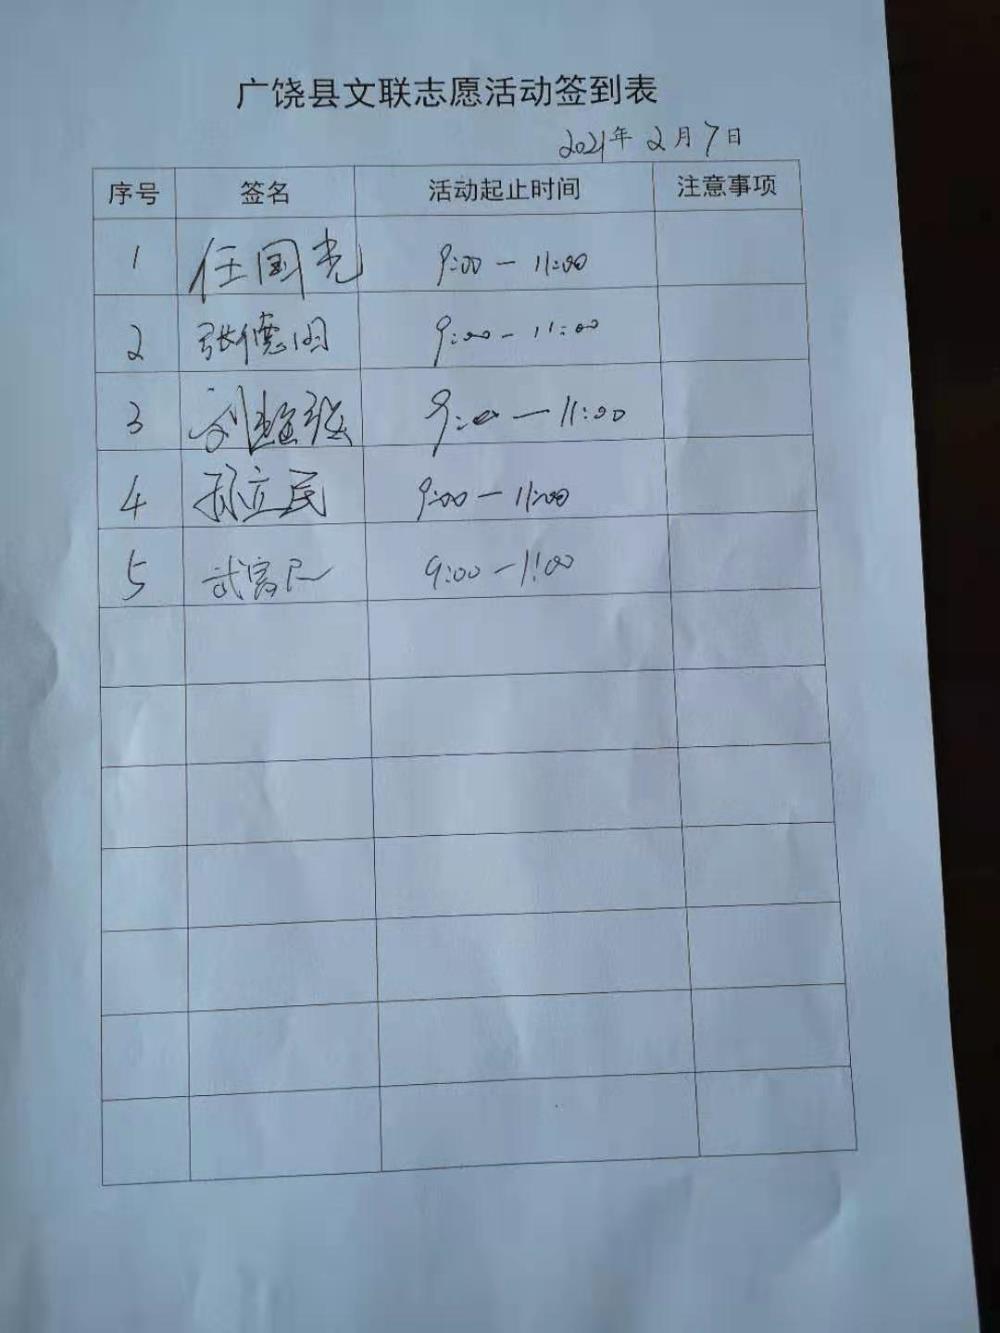 广饶县文联志愿活动签到表
2021年2月7日
序号 签名 活动起止时间 注意事项
1 任国光 9:00-11:00
2 张德 9:00-11:00
3 刘 9:00-11:00
4 孙立民 9:00-11:00
5 武富民 9:00-11:00